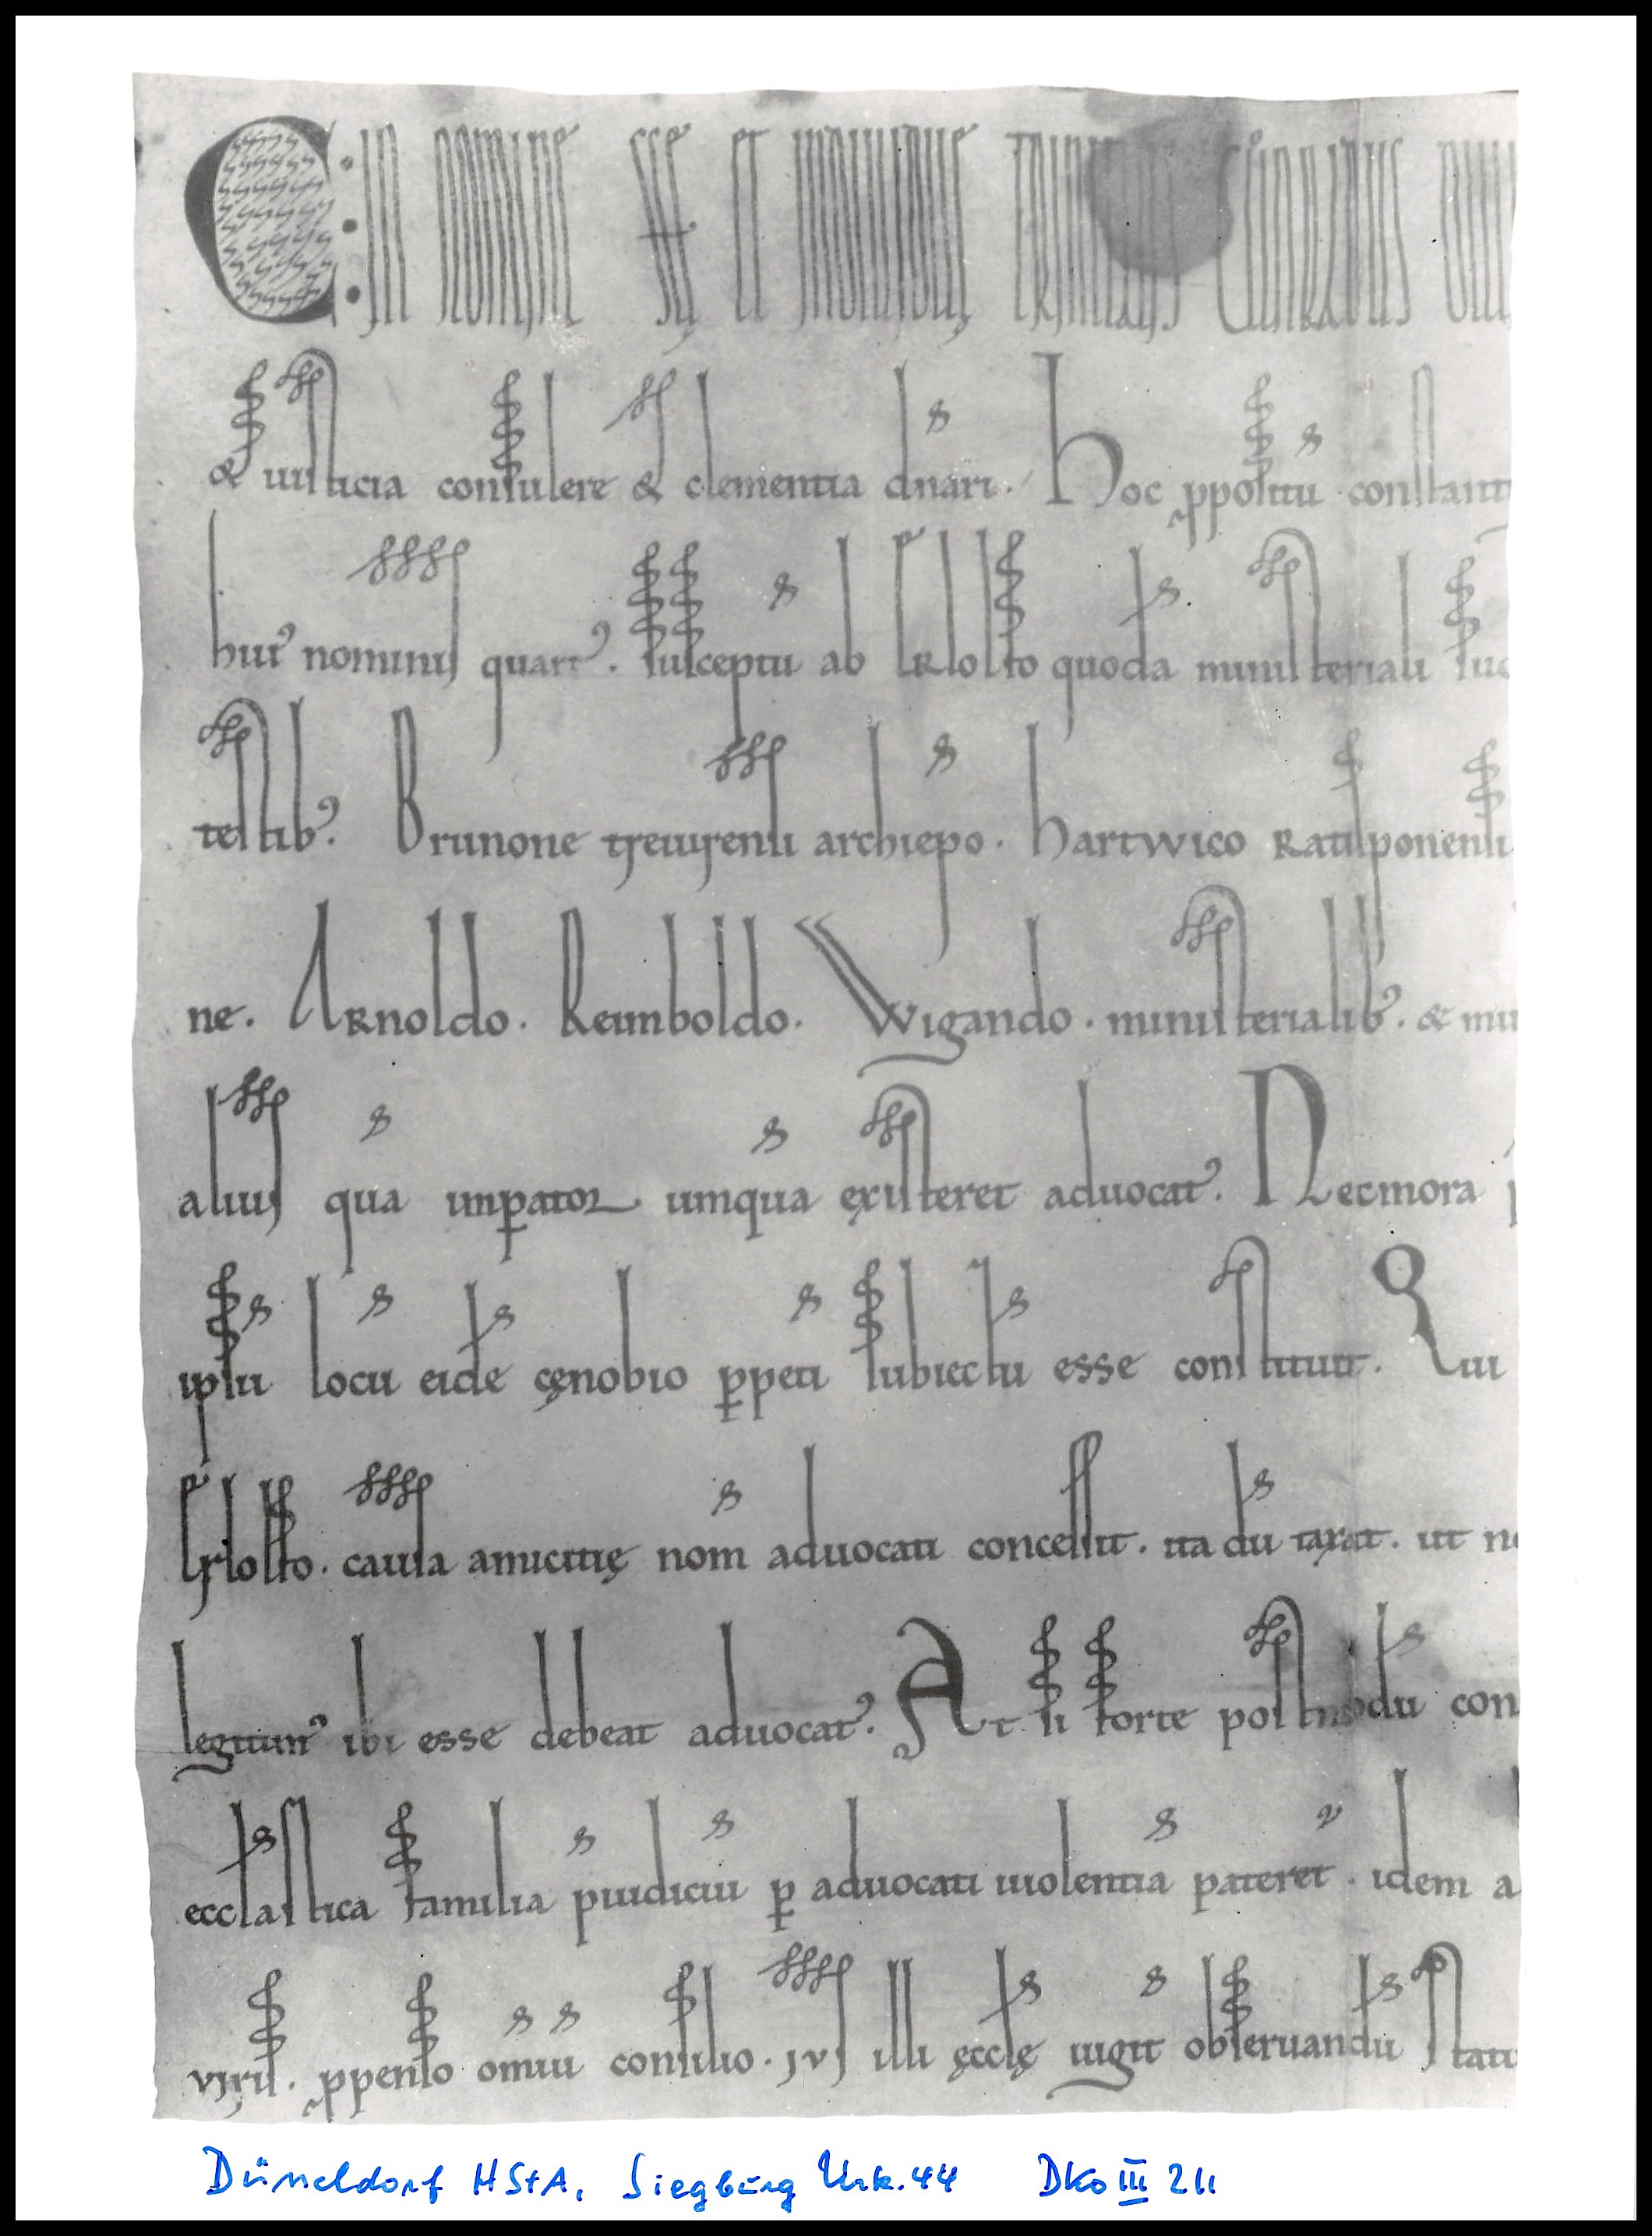 C : IN NOMINE SCĘ ET INDIVIDUĘ TRINITATIS CŮNRADUS
& iusticia consulere & clementia dn̄ari. Hoc ꝓpositū constant
huiꝰ nominis quartꝰ. susceptū ab ERlolfo quodā ministeriali suo
testibꝰ. Brunone treuirensi archiep̄o. hartwico Ratisponensi
ne. ARnoldo. Reimboldo. Wigando. ministerialibꝰ. &
alius quā imꝑator umquā existeret aduocatꝰ. Necmora
ipsū locū eidē cęnobio ꝑpetī subiectū esse constituit. Qui
Erlolfo. causa amicitię nom̄ aduocati concessit. ita dū taxat. ut
legitimꝰ ibi esse debeat aduocatꝰ. At si forte postmodū con
ecclastica familia p̄iudiciū ꝑ aduocati uiolentiā pateret̄. idem a
virū. ꝓpenso om̄iū consilio. jus illi ęcclę iugit̄ obseruandū stati
Düsseldorf HStA, Siegburg Urk. 44 DKo III 211